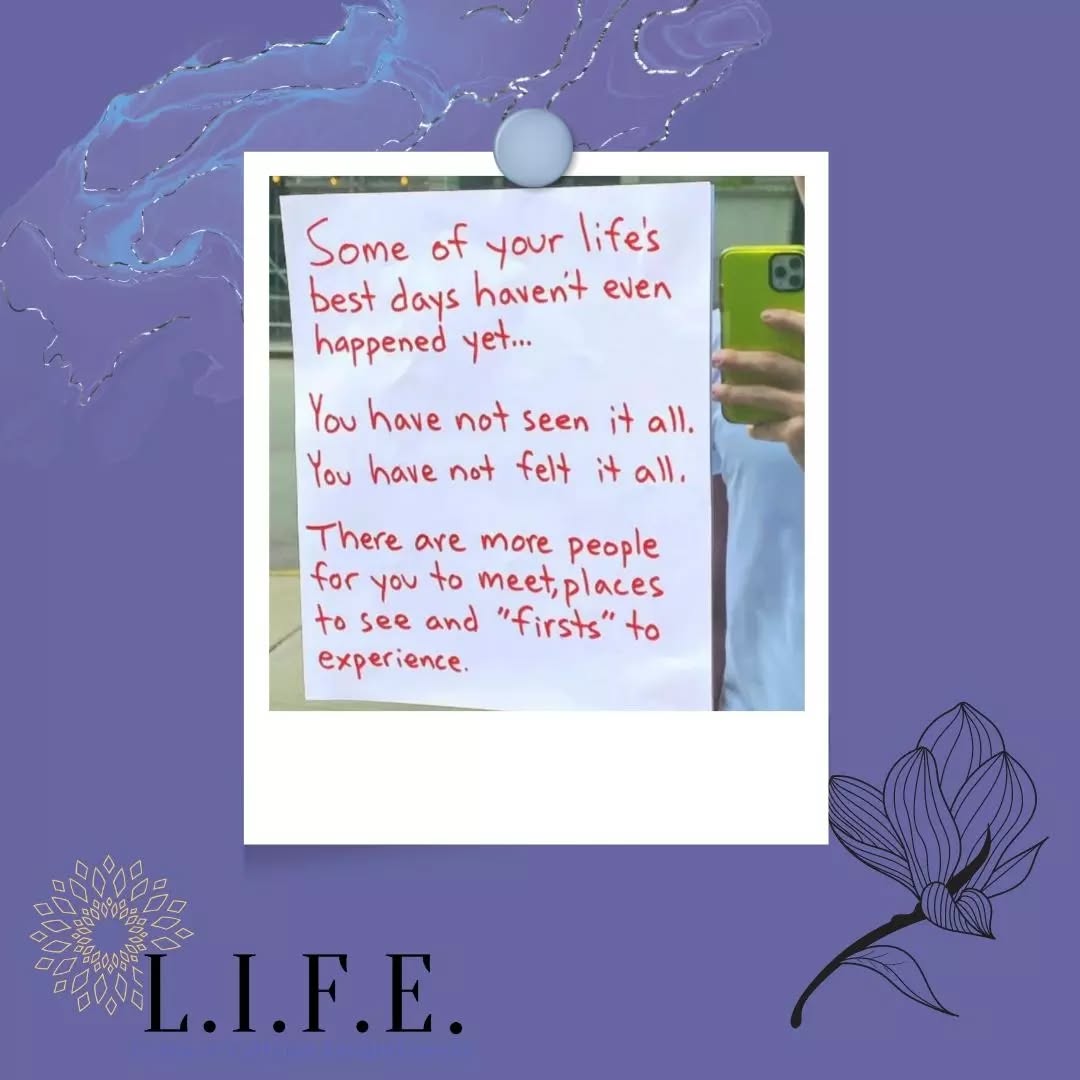 Some of your life's
best days haven't even
happened yet...
You have not seen it all.
You have not felt it all.
There are more people
for you to meet, places
to see and "firsts" to
experience.
L.I.F.E.